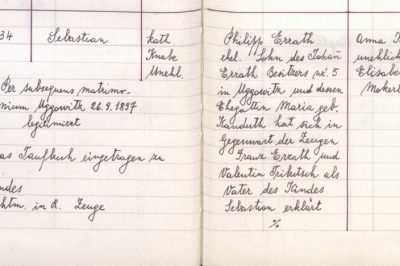 34 Sebastian kath.
Knabe
Unehl.
Per subsequens matrimo-
nium Uggowitz 26.9.1897
legitimiert
das Taufbuch eingetragen zu
Kindes
in R. Zeuge
Philipp Errath
ehel. Sohn des Johañ
Errath Besitzers nr. 5
in Uggowitz und dessen
Ehegattin Maria geb.
Kanduth hat sich in
Gegenwart der Zeugen
Franz Errath und
Valentin Trikitsch als
Vater des Kindes
Sebastian erklärt
%
Anna
unehlich
Elisabe